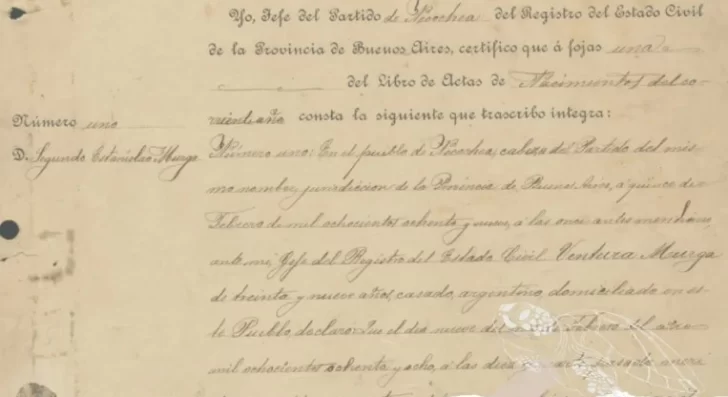 Yo, Jefe del Partido de Necochea del Registro del Estado Civil
de la Provincia de Buenos Aires, certifico que á fojas una
del Libro de Actas de Nacimientos del co-
rriente año consta la siguiente que trascribo integra:
Número uno
D. Segundo Estanislao Murga
Número uno: En el pueblo de Necochea, cabeza del Partido del mis-
mo nombre, jurisdiccion de la Provincia de Buenos Aires, a quince de
Febrero de mil ochocientos ochenta y nueve, a las once antes meridiano,
ante mi, Gefe del Registro del Estado Civil Ventura Murga
de treinta y nueve años, casado, argentino, domiciliado en es-
te Pueblo, declaró: Que el dia nueve del Febrero del año
mil ochocientos ochenta y ocho, a las diez pasado meri